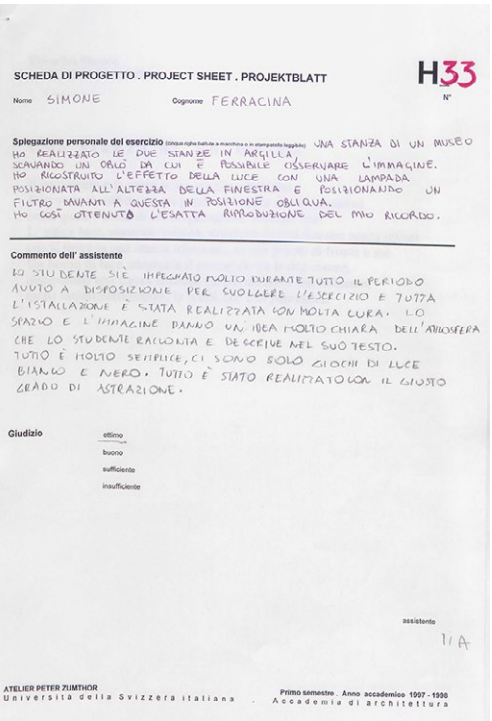 SCHEDA DI PROGETTO . PROJECT SHEET . PROJEKTBLATT
H33
Nome SIMONE Cognome FERRACINA N°
Spiegazione personale del esercizio (cinque righe battute a macchina o in stampatello leggibile) UNA STANZA DI UN MUSEO
HO REALIZZATO LE DUE STANZE IN ARGILLA,
SCAVANDO UN OBLÒ DA CUI È POSSIBILE OSSERVARE L'IMMAGINE.
HO RICOSTRUITO L'EFFETTO DELLA LUCE CON UNA LAMPADA
POSIZIONATA ALL'ALTEZZA DELLA FINESTRA E POSIZIONANDO UN
FILTRO DAVANTI A QUESTA IN POSIZIONE OBLIQUA.
HO COSÌ OTTENUTO L'ESATTA RIPRODUZIONE DEL MIO RICORDO.
Commento dell' assistente
LO STUDENTE SI È IMPEGNATO MOLTO DURANTE TUTTO IL PERIODO
AVUTO A DISPOSIZIONE PER SVOLGERE L'ESERCIZIO E TUTTA
L'ISTALLAZIONE È STATA REALIZZATA CON MOLTA CURA. LO
SPAZIO E L'IMMAGINE DANNO UN IDEA MOLTO CHIARA DELL'ATMOSFERA
CHE LO STUDENTE RACCONTA E DESCRIVE NEL SUO TESTO.
TUTTO È MOLTO SEMPLICE, CI SONO SOLO GIOCHI DI LUCE
BIANCO E NERO. TUTTO È STATO REALIZZATO CON IL GIUSTO
GRADO DI ASTRAZIONE.
Giudizio ottimo
buono
sufficiente
insufficiente
assistente
ATELIER PETER ZUMTHOR
Università della Svizzera italiana . Primo semestre . Anno accademico 1997 - 1998
Accademia di architettura